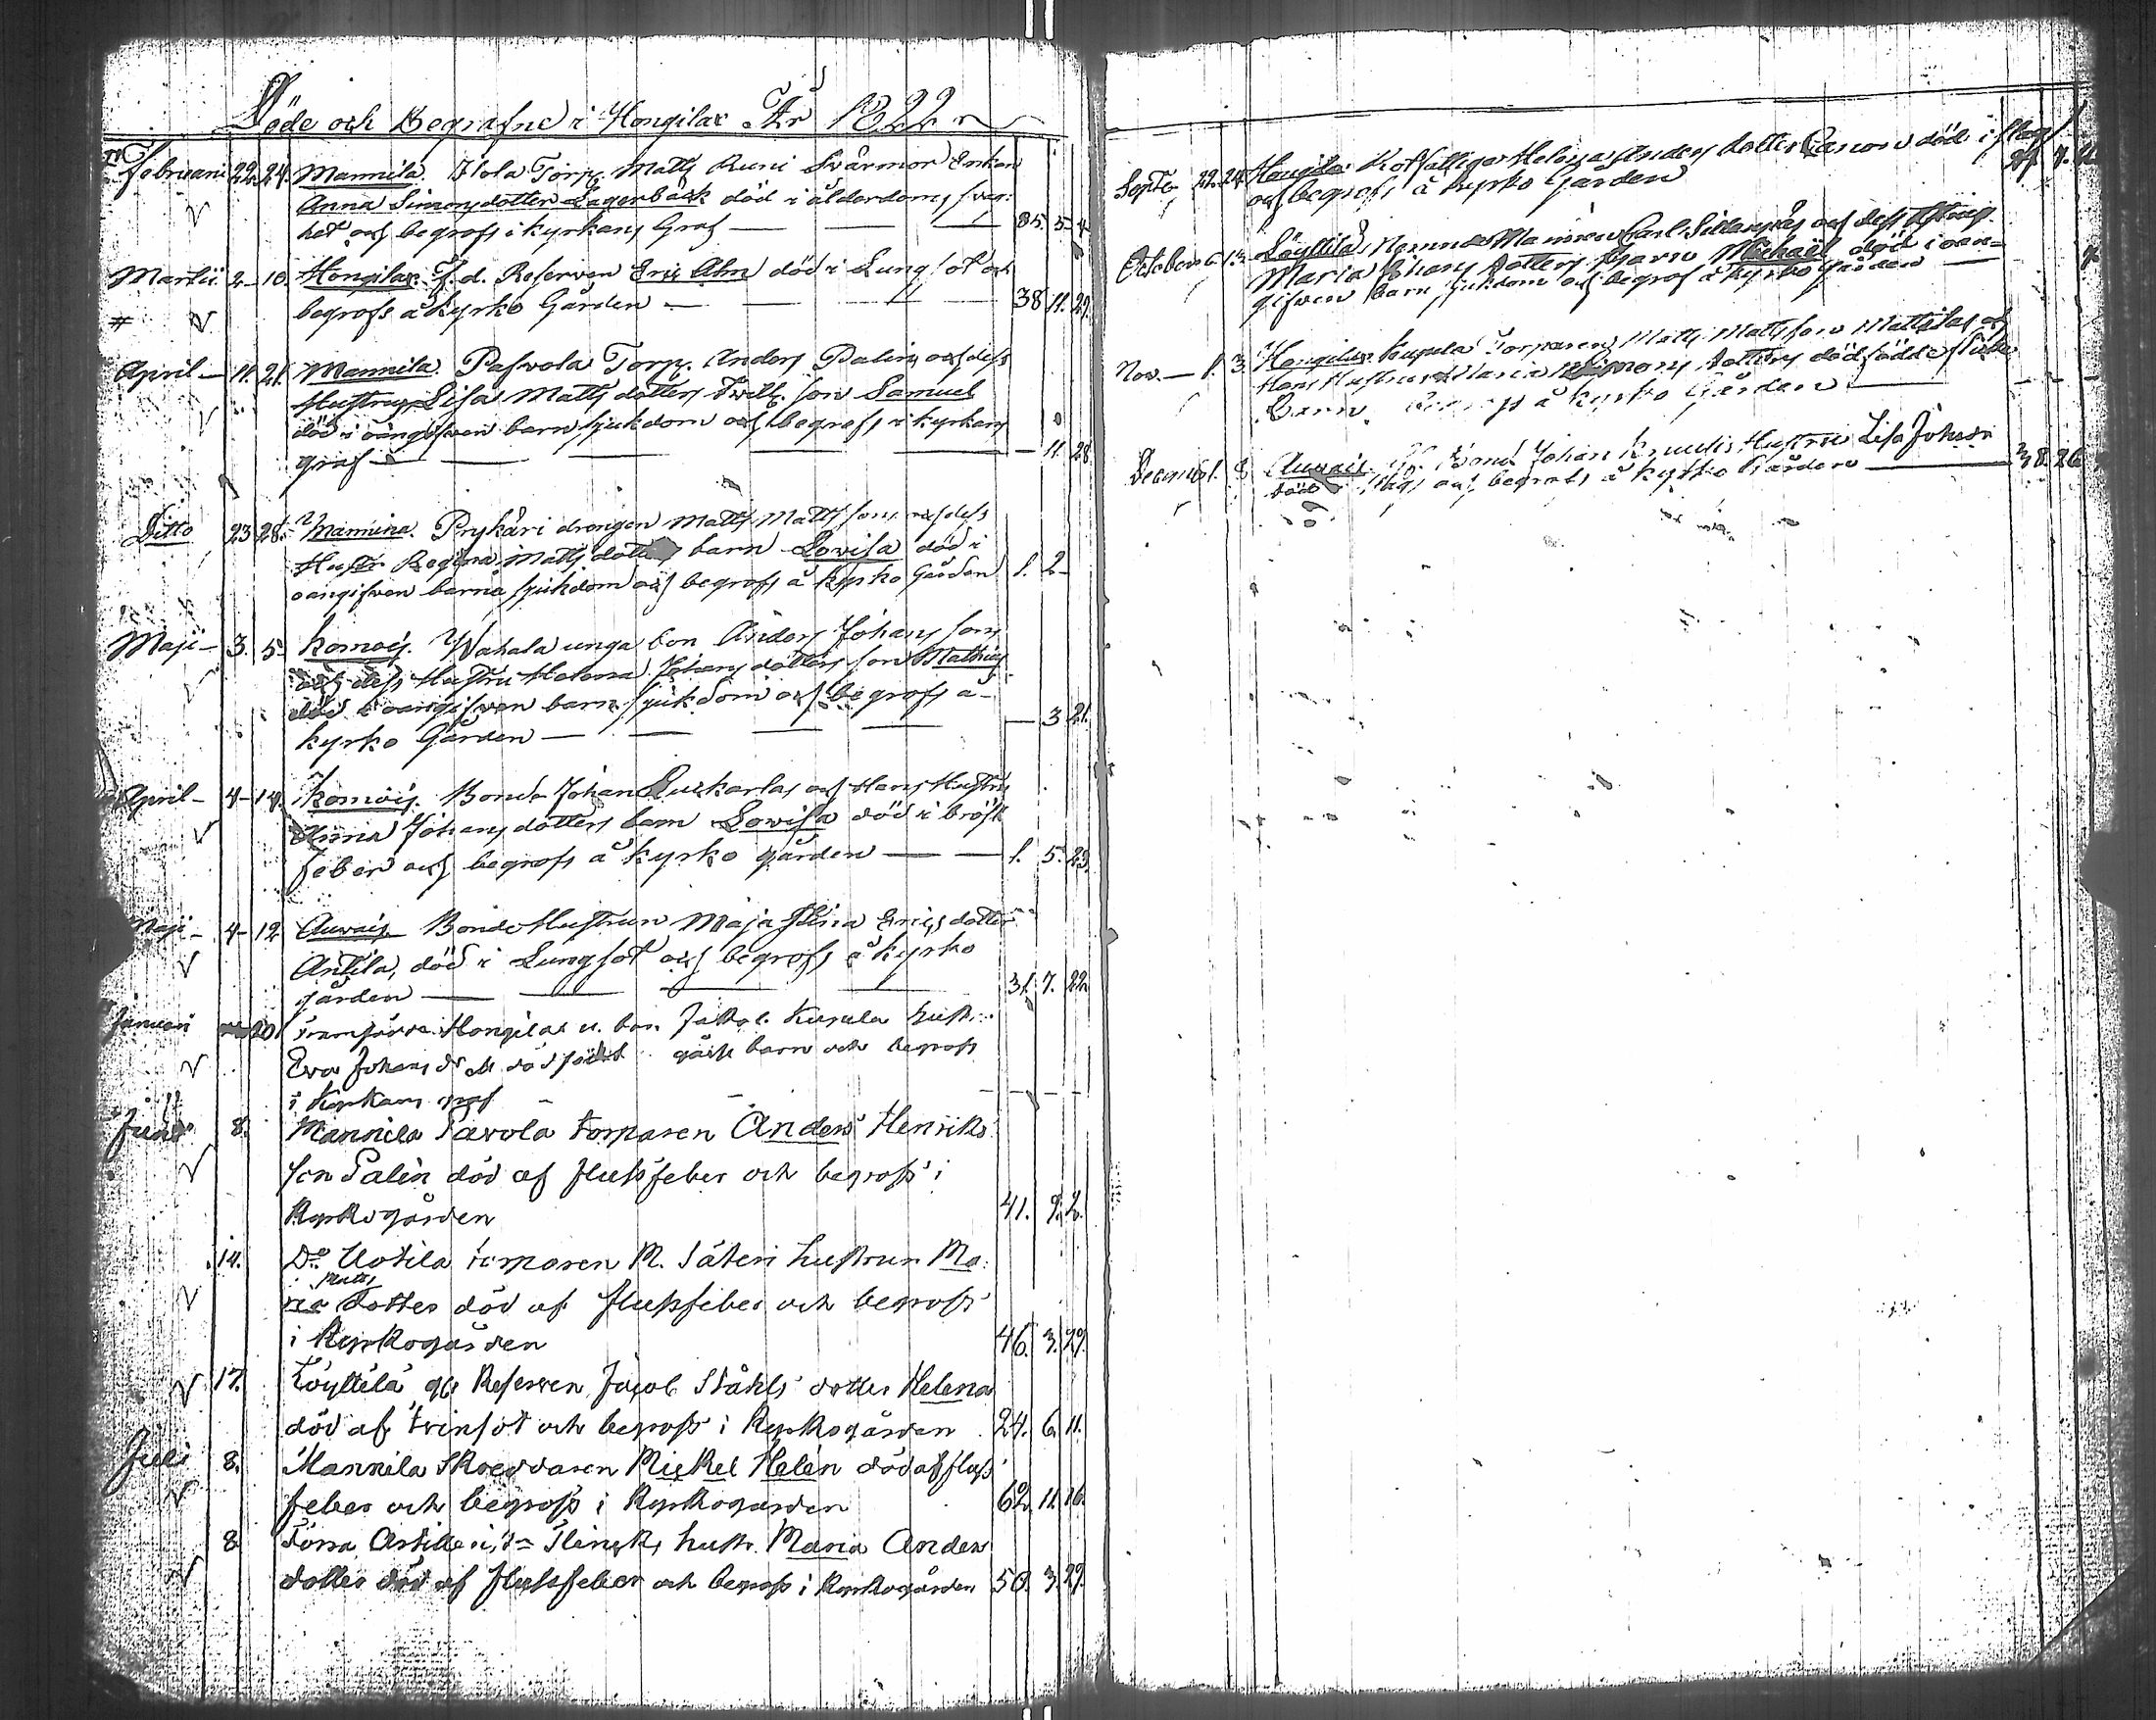 Döde och Begrafne i Hongilax År 1822
Februarii 22. 24. Mannila. Ilola Torp. Matts Runi Svärmor Enkan
Anna Simonsdotter Lagerbäck död i ålderdoms svag-
het och begrofs i kyrkans Graf — — — 85. 5. 4
Martii 2. 10. Hongilax. F. d. Reserven Eric Alm död i Lungsot och
begrofs å Kyrko Gården — — — 38 11. 29.
April — 11. 21. Mannila. Pafvola Torp. Anders Palins och dess
Hustrus Lisa Matts dotters Twill. son Samuel
död i oangifven barnsjukdom och begrofs i kyrkans
graf — — — — 11. 28
Ditto 23 28. Mannila. Prykäri drengen Matts Mattssons och dess
Hustr. Regina Matts dotters barn Lovisa död i
oangifven barnasjukdom och begrofs å kyrko Gården 1. 2 -
Maji — 3. 5. Komois. Wahala unga bon Anders Johans sons
och dess Hustru Helena Johans dotters son Mathias
död i oangifven barnsjukdom och begrofs å
kyrko Gården — — — — — 3 21.
April — 4 - 14. Komois. Bonde Johan Luckarlas och Hans Hustru
Anna Johans dotters barn Lovisa död i bröst
feber och begrofs å kyrko gården — — 1. 5. 23.
Maji — 4 - 12 Auvais Bonde Hustrun Maja Stina Erics dotter
Antila, död i Lungsot och begrofs å kyrko
gården — — — — 31. 7. 22
Januari 20. Hongilax u. bon. Jakob Kupila hustr.
Eva Johans dödfödt barn och begrofs
i Kyrkans graf - - - - -
Junii 8. Mannila Pavola torparen Anders Henriks
son Palin död af flussfeber och begrofs i
Kyrkogården 41. 9. 2.
14. Do Uotila torparen M. Säteri hustrun Ma-
Matts
ria dotter död af flussfeber och begrofs
i Kyrkogården 46. 3. 29.
17. Löyttilä gl. Reserven Jacob Ståhls dotter Helena
död af trinsot och begrofs i Kyrkogården 24. 6. 11.
Juli 8. Mannila Skreddaren Mickel Helèn död af fluss
feber och begrofs i Kyrkogården 62. 11. 16.
8 Torra Flinck, hustr. Maria Anders
dotter död af flussfeber och begrofs i Kyrkogården 50. 3. 29.
Septbr 22. 24. Hongila. Rotfattiga Helena Anders dotter död i slag
och begrofs å kyrko Gården
October 6. 13. Löyttilä Nemndemannen Carl och dess Hustrus
Maria Johans dotters Barn Michaël död i oan-
gifven barnsjukdom och begrof å kyrko Gården
Nov. — 1. 3. Hongilax Kupila Torparens Matts Mattssons Mattilas och
Hans Hustrus Maria Simons dotters dödfödde flicke
Barn Begrofs å kyrko Gården — - - -
Decemb. 1. 8 Auvais Bond. Johan Hustru Lisa Johans
död i slag och begrofs å kyrko Gården — 8. 26.